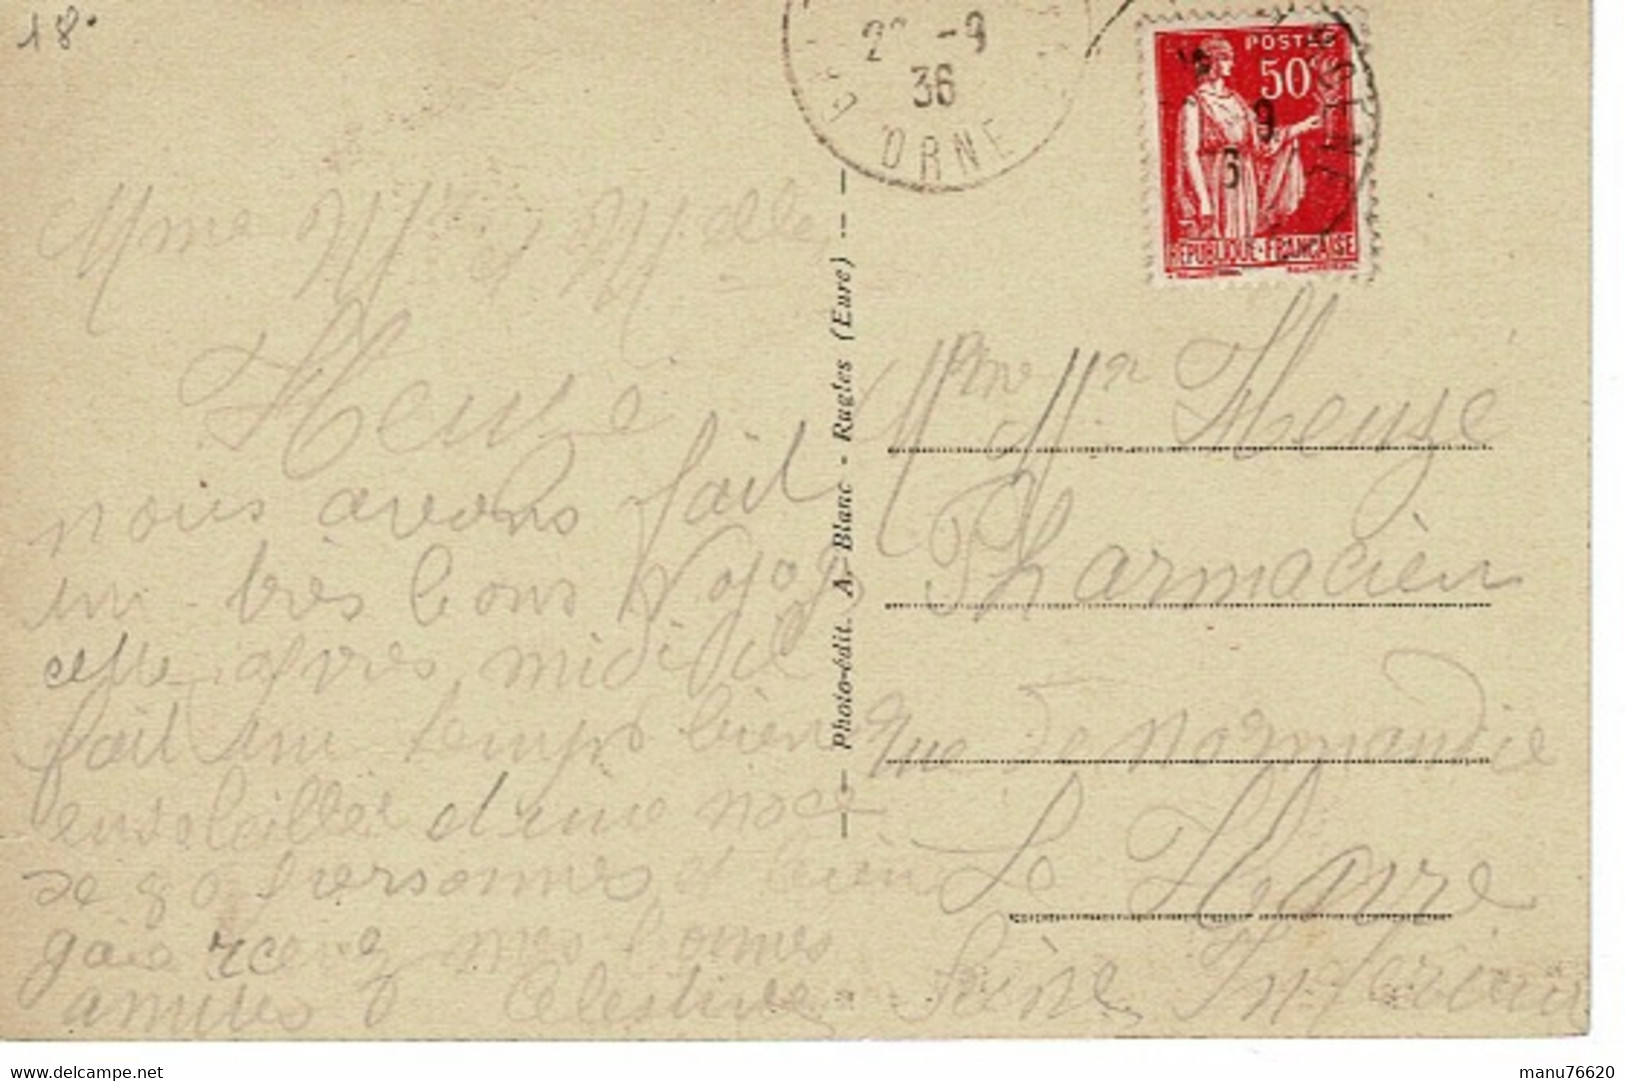 18.
2 -9
36
ORNE
POSTES
50c
9
6
REPUBLIQUE-FRANÇAISE
Mme Mr et Melle
Heuzé
nous avons fait
un très bons voyage
cette après midi il
fait un temps bien
ensolaillée d'une noce
de 80 personnes et bien
gaie recevez nos bonnes
amities Celestine
Photo-édit. A. Blanc - Rugles (Eure)
Mme Mr Heuzé
Pharmacien
Rue de normandie
Le Havre
Seine Inferieur
delcampe.net
manu76620